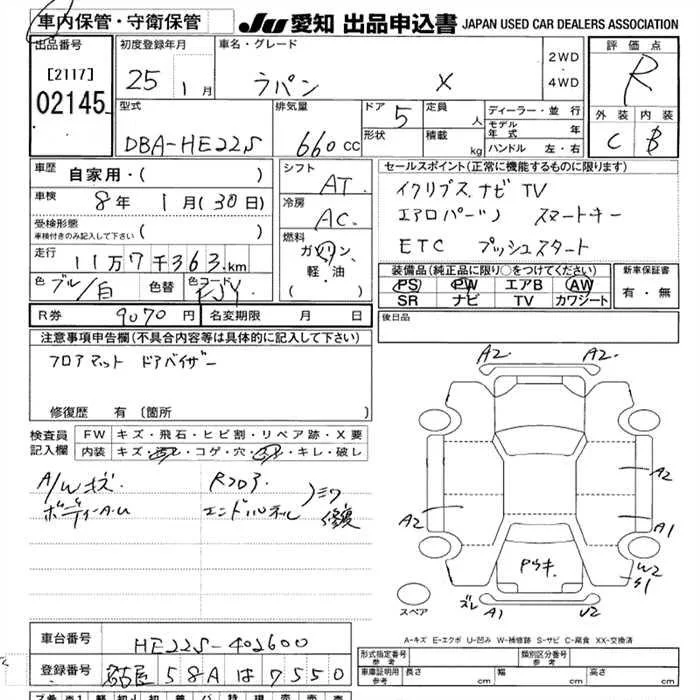 車内保管・守衛保管
JU 愛知 出品申込書 JAPAN USED CAR DEALERS ASSOCIATION
出品番号
[2117]
02145
初度登録年月
25 1月
車名・グレード
ラパン X
2WD
4WD
評価点
R
外装 内装
C B
型式
DBA-HE22S
排気量
660cc
ドア
5
形状
定員
人
積載
kg
ディーラー・並行
モデル年式 年
ハンドル 左・右
車歴
自家用・( )
車検
8年 1月(30日)
受検形態
車検付きのみ記入して下さい ( )
走行
11万7千363km
色 ブル/白 色替 色コード
シフト
AT
冷房
AC
燃料
ガソリン
軽・油
( )
セールスポイント(正常に機能するものに限ります)
イクリプス ナビ TV
エアロパーツ スマートキー
ETC プッシュスタート
装備品(純正品に限り○をつけてください)
PS PW エアB AW
SR ナビ TV カワシート
新車保証書
有・無
R券 9070円 名変期限 月 日
後日品
注意事項申告欄(不具合内容等は具体的に記入して下さい)
フロアマット ドアバイザー
修復歴 有(箇所 )
検査員記入欄
FW キズ・飛石・ヒビ割・リペア跡・X要
内装 キズ・汚れ・コゲ・穴・・キレ・破レ
A/Wキズ
ボディーA.U
Rフロア
エンドパネル
修復
A2 A2
A2
A2
A1
W2
S1
ズレ A1 U2
スペア
A-キズ E-エクボ U-凹み W-補修跡 S-サビ C-腐食 XX-交換済
車台番号
HE22S-402600
登録番号
名古屋 58A は 7550
形式指定番号
参考
類別区分番号
参考
車庫証明用
参考
長さ cm
幅 cm
高さ cm